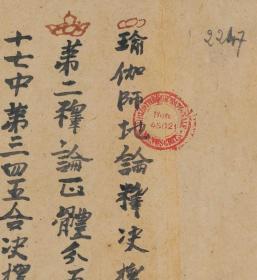 瑜伽師地論釋決擇
第二釋論正體分五
十七中第三四五合決擇
2247